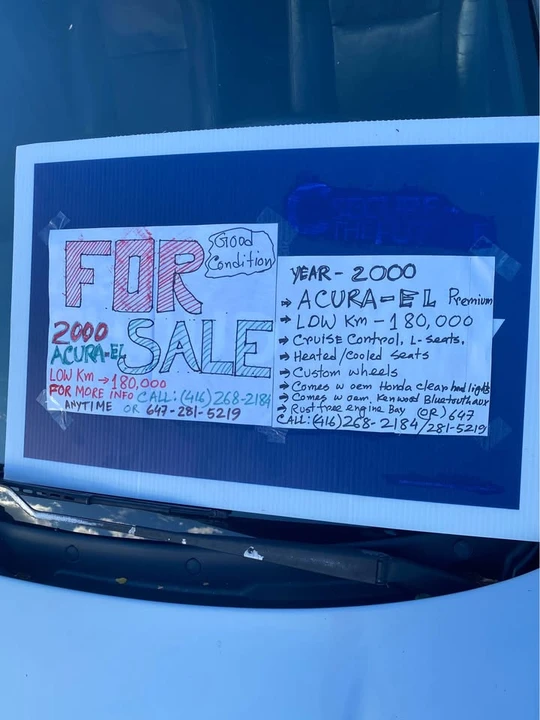 FOR
Good
Condition
SALE
2000
ACURA-EL
LOW Km → 180,000
FOR MORE INFO CALL: (416) 268-2184
ANYTIME OR 647-281-5219
YEAR - 2000
⇒ ACURA-EL Premium
→ LOW Km - 180,000
→ Cruise Control, L-seats.
→ Heated/Cooled seats
→ Custom wheels
→ Comes w oem Honda clear head lights
→ Comes w oem, Kenwood Bluetouth aux
→ Rust free engine Bay (OR) 647
CALL: (416) 268-2184/281-5219